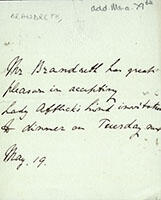 BRANDRETH
Add. Ms. a.
Mr Brandreth has great
pleasure in accepting
Lady Affleck's kind invitation
to dinner on Tuesday next
May. 19.